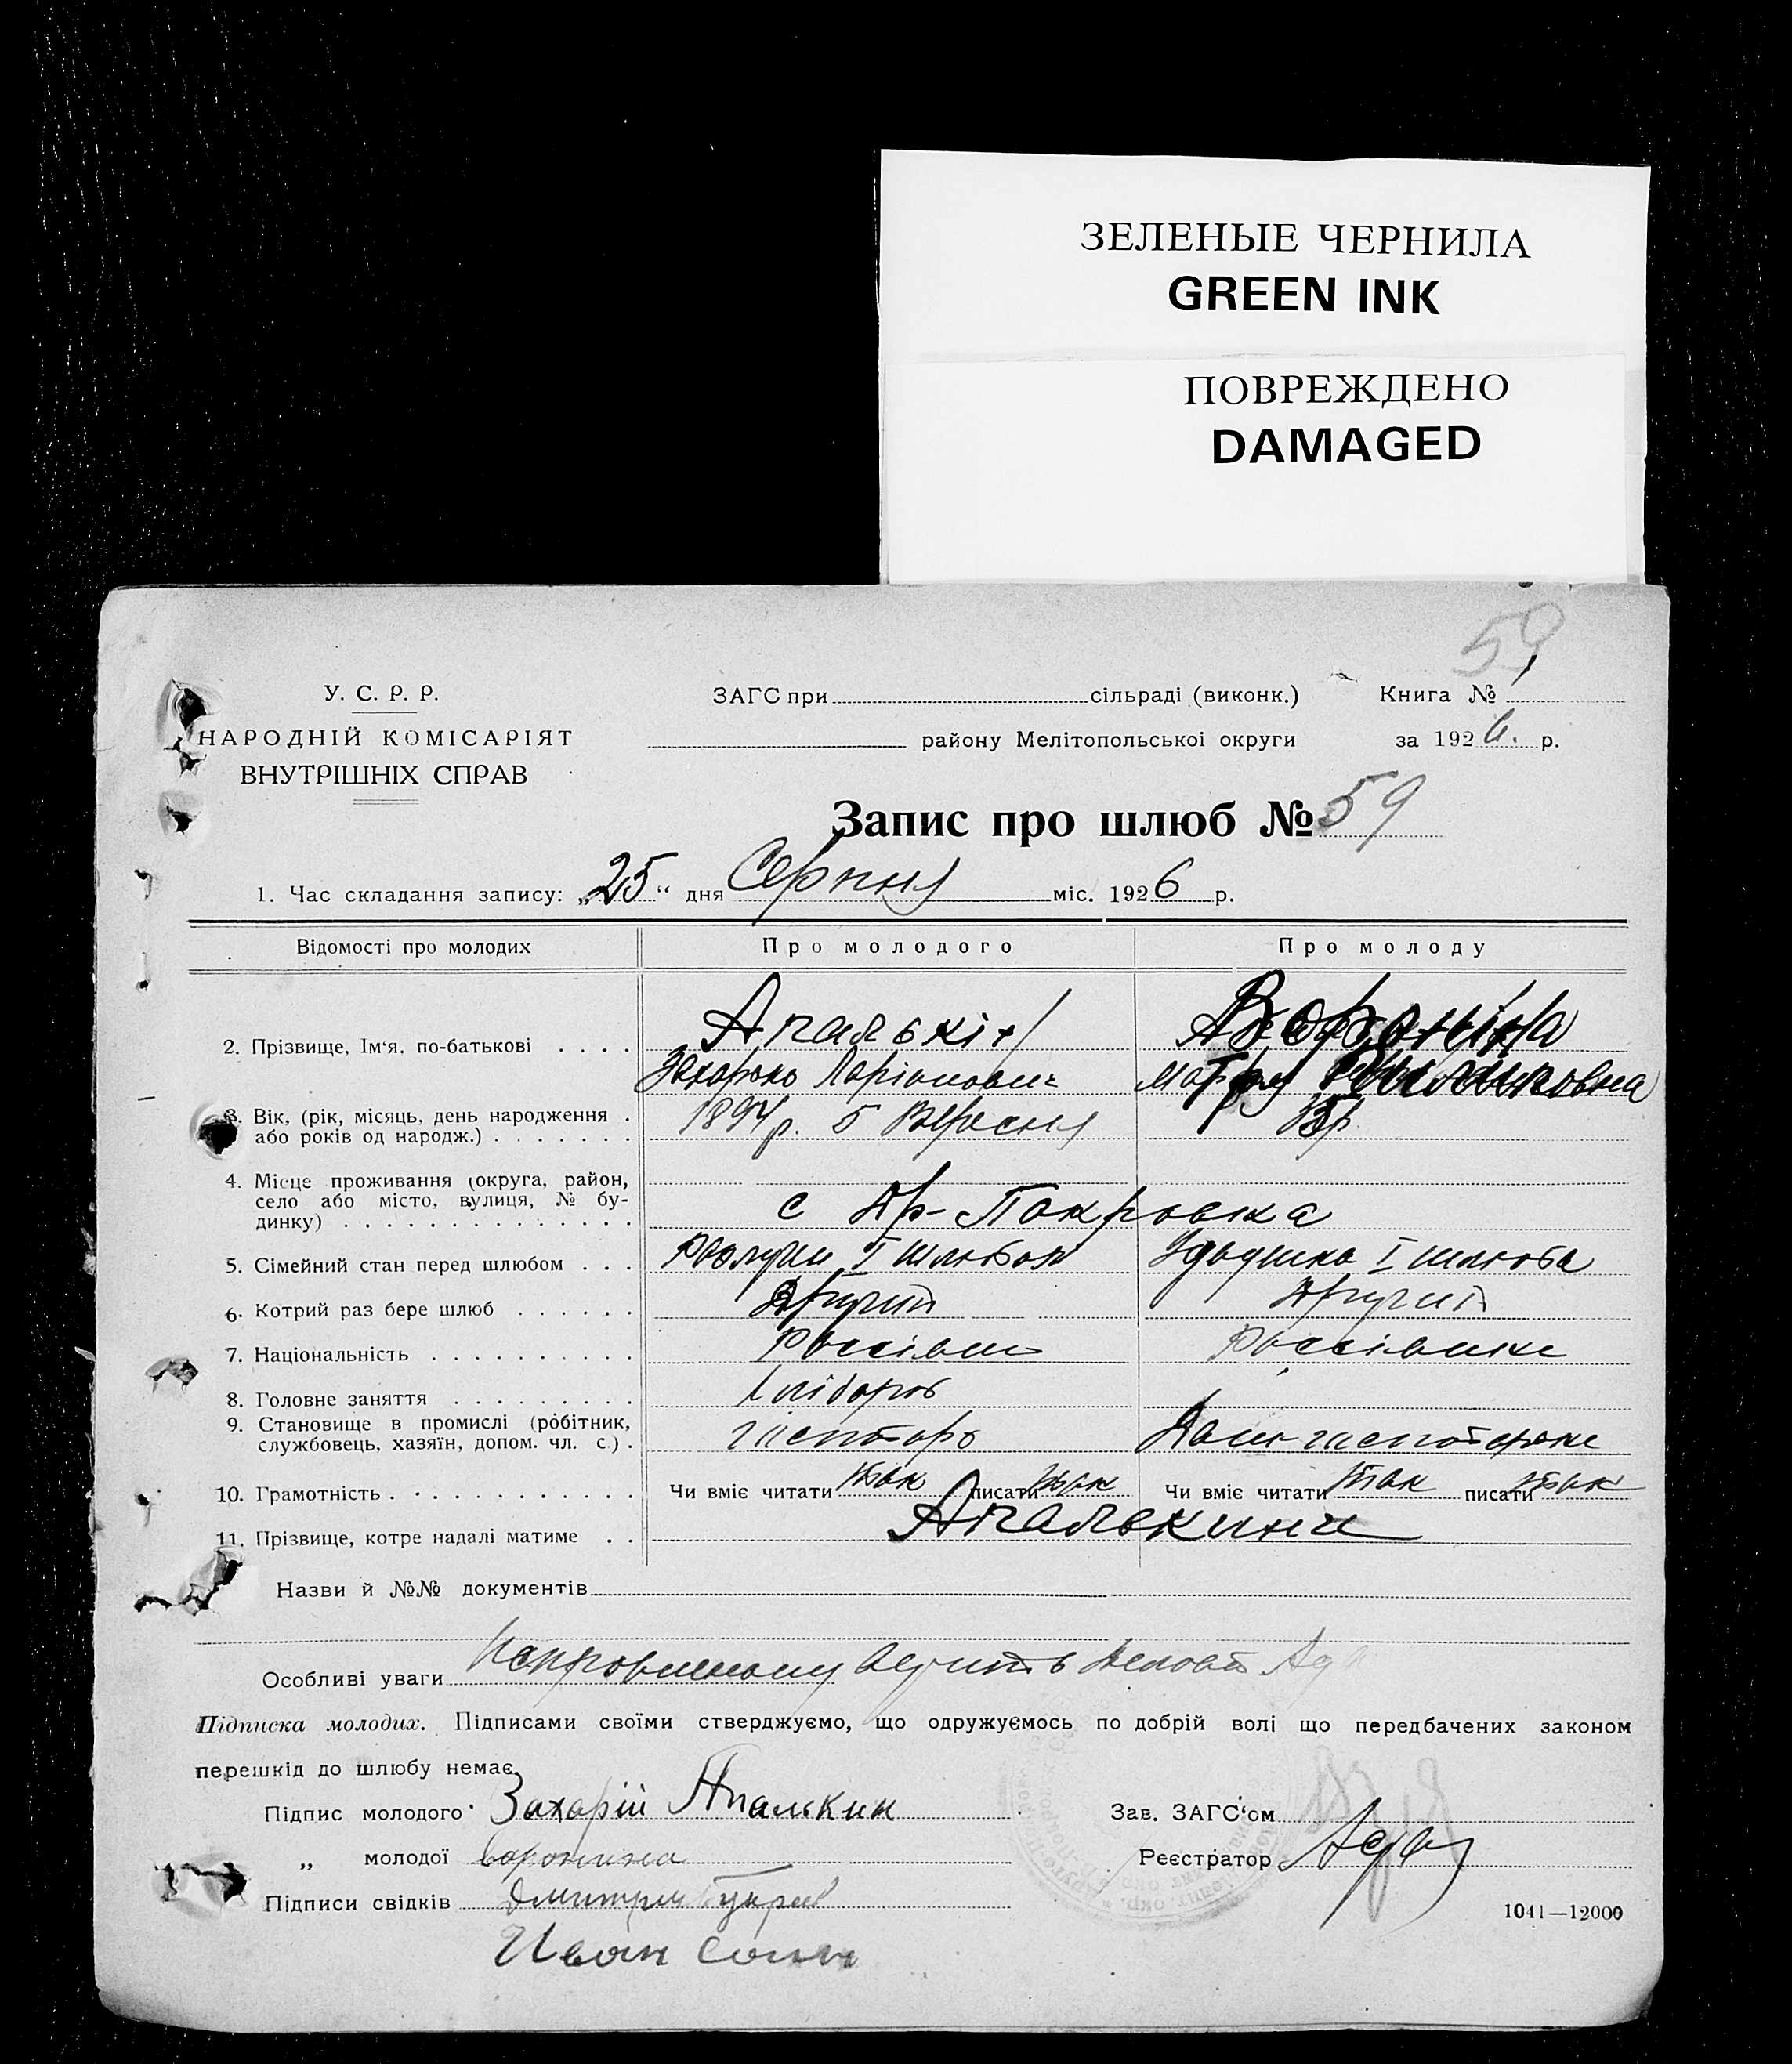 ЗЕЛЕНЫЕ ЧЕРНИЛА
GREEN INK
ПОВРЕЖДЕНО
DAMAGED
59
У. С. Р. Р.
НАРОДНІЙ КОМІСАРІЯТ
ВНУТРІШНІХ СПРАВ
ЗАГС при сільраді (виконк.)
району Мелітопольської округи
Книга № 1
за 1926. р.
Запис про шлюб № 59
1. Час складання запису: „25“ дня Серпня міс. 1926 р.
Відомості про молодих Про молодого Про молоду
2. Прізвище, Ім'я, по-батькові . . . . Апалькін Вороніна
Захарко Ларіонович
3. Вік, (рік, місяць, день народження . 1894 р. 5 Вересня
або років од народж.) . . . . . . .
4. Місце проживання (округа, район,
село або місто, вулиця, № бу- с Ар-Покровка
динку) . . . . . . . . . . . . . .
5. Сімейний стан перед шлюбом . . . I шлюбом I шлюба
6. Котрий раз бере шлюб . . . . . . Другий Другий
7. Національність . . . . . . . . . .
8. Головне заняття . . . . . . . . . Хлібороб
9. Становище в промислі (робітник,
службовець, хазяїн, допом. чл. с.) .
10. Грамотність . . . . . . . . . . . . Чи вміє читати так писати так Чи вміє читати так писати так
11. Прізвище, котре надалі матиме . . Апалькини
Назви й №№ документів
Особливі уваги Исправленому верить
Підписка молодих. Підписами своїми стверджуємо, що одружуємось по добрій волі що передбачених законом
перешкід до шлюбу немає.
Підпис молодого Захарій Апалькин Зав. ЗАГС'ом
„ молодої Воронина Реєстратор
Підписи свідків Дмитрий
1041—12000
Иван